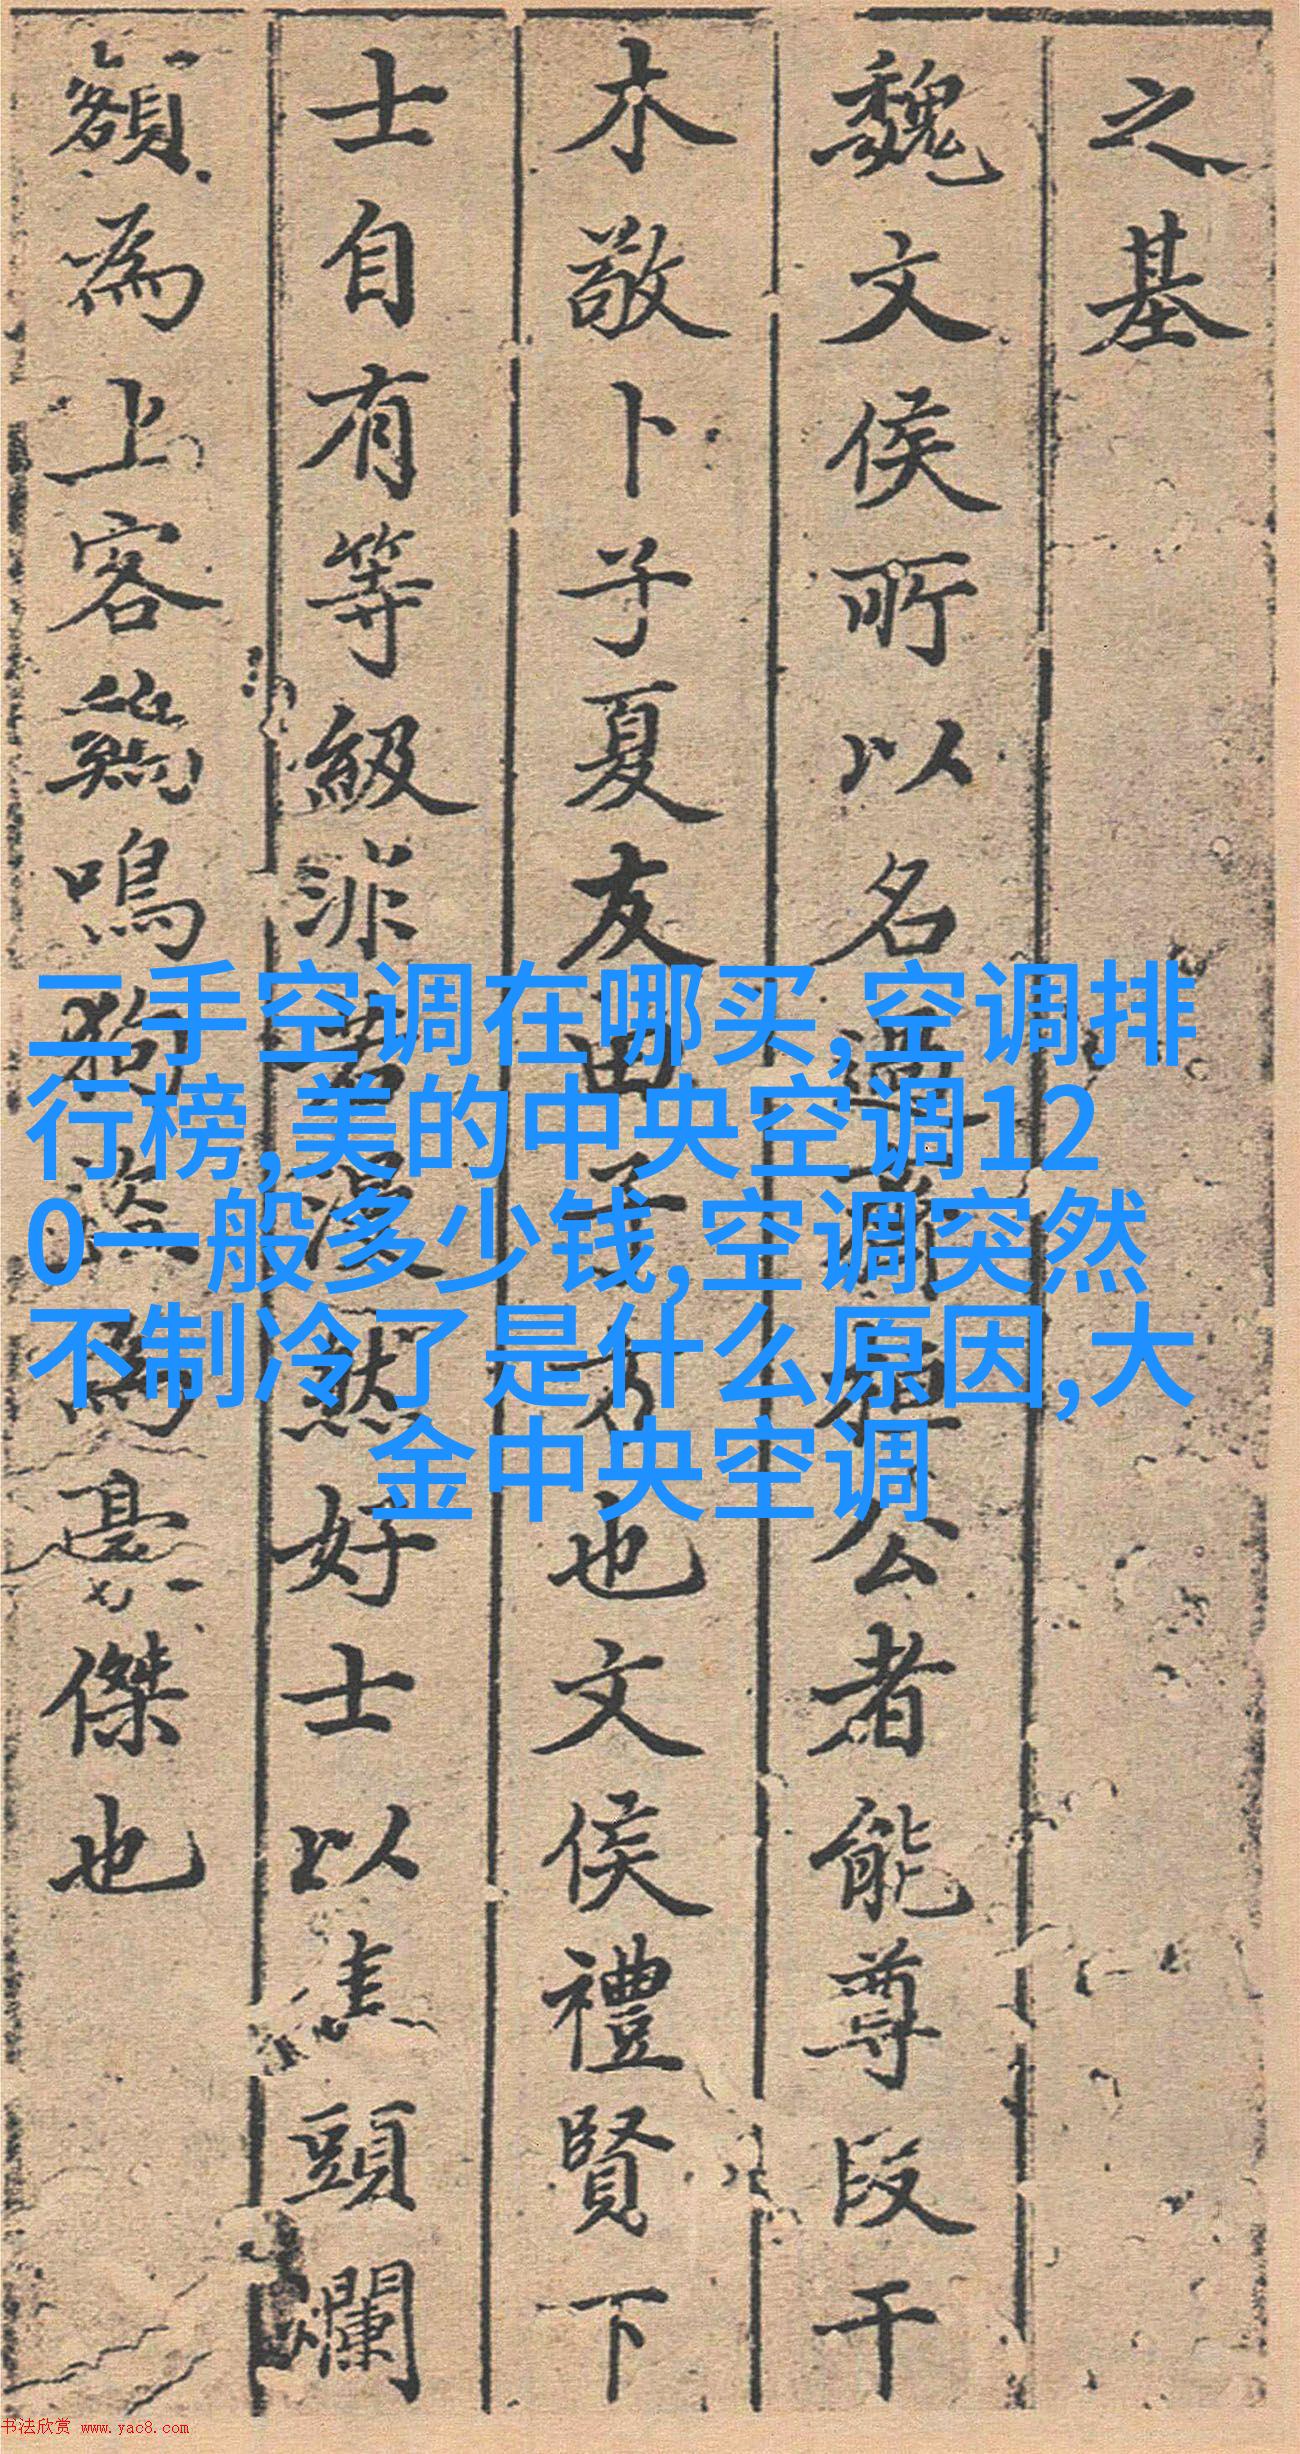 之基
魏文侯所以名過齊桓公者能尊段干
木敬卜子夏友田子方也文侯禮賢下
士自有等級非若漫然好士以焦頭爛
額為上客雞鳴狗盜為豪傑也
二手空调在哪买,空调排
行榜,美的中央空调12
0一般多少钱,空调突然
不制冷了是什么原因,大
金中央空调
书法欣赏 www.yac8.com